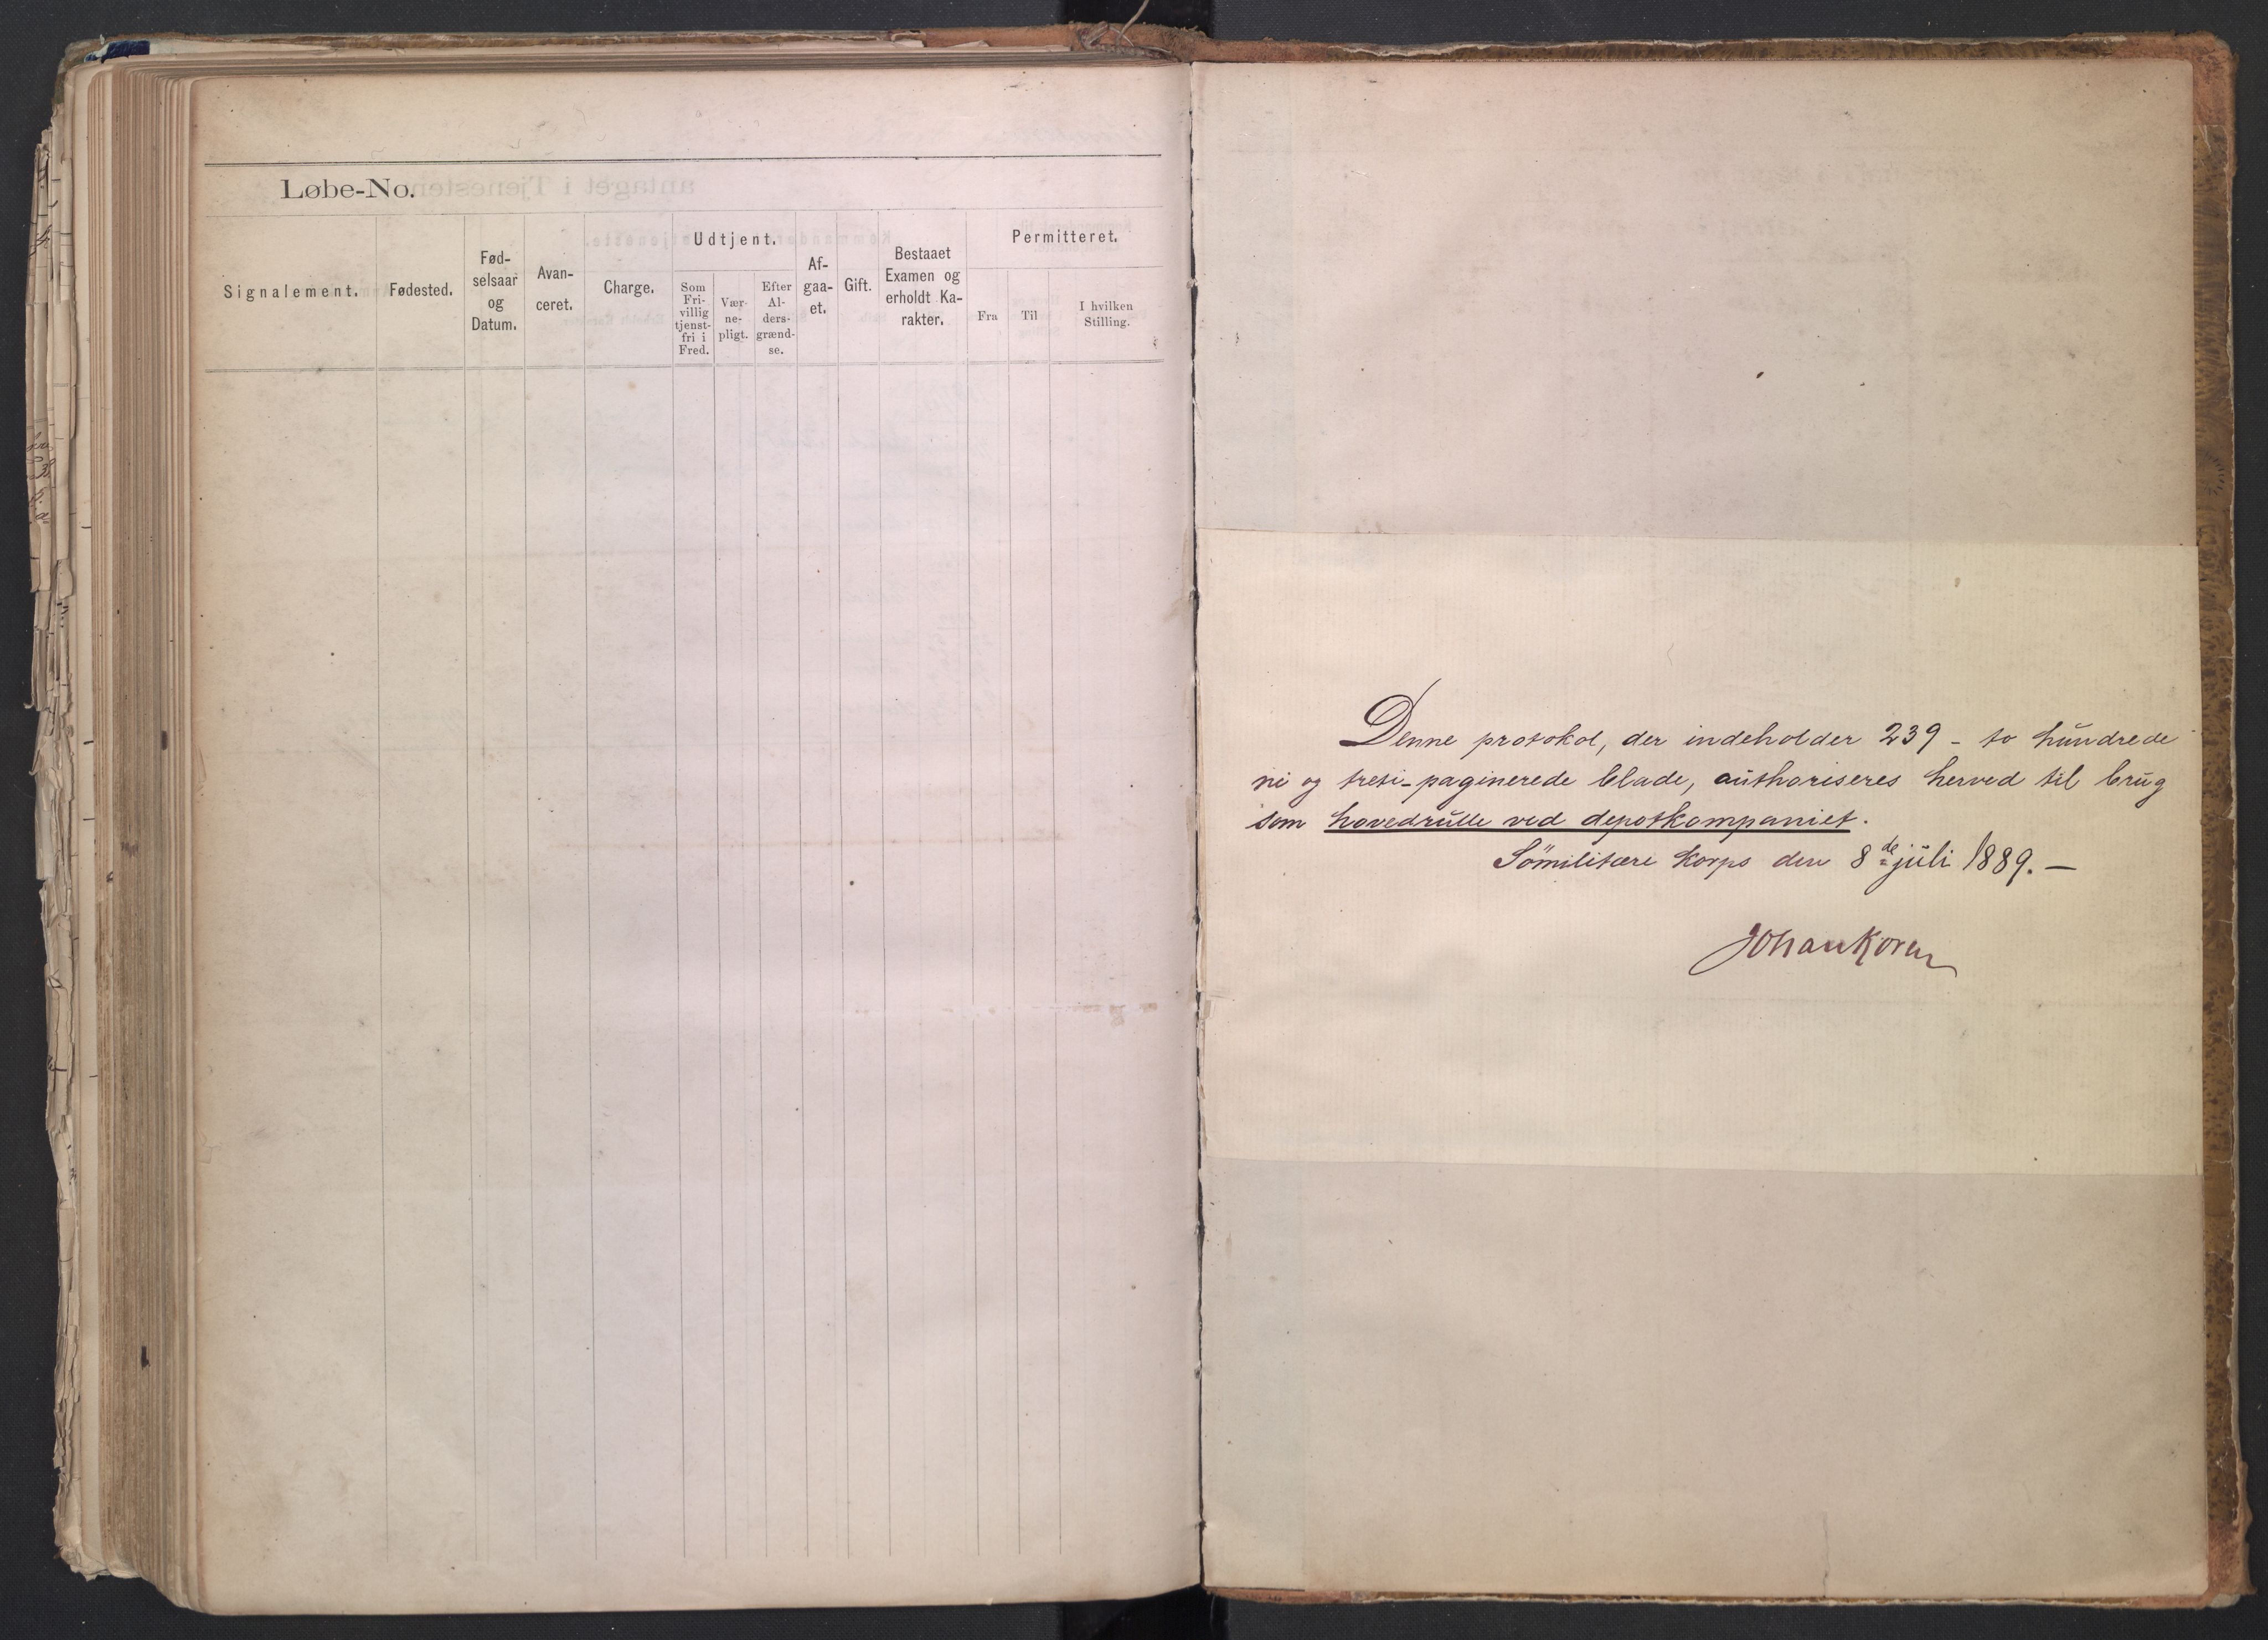 Løbe-No.
Signalement.
Fødested.
Fød-
selsaar
og
Datum.
Avan-
ceret.
Charge.
Udtjent.
Som
Fri-
villig
tjenst-
fri i
Fred.
Vær-
ne-
pligt.
Efter
Al-
ders-
grænd-
se.
Af-
gaa-
et.
Gift.
Bestaaet
Examen og
erholdt Ka-
rakter.
Permitteret.
Fra
Til
I hvilken
Stilling.
Denne protokol, der indeholder 239 - to hundrede
ni og treti - paginerede blade, authoriseres herved til brug
som hovedrulle ved depotkompaniet.
Sömilitære korps den 8de juli 1889. —
Johan Koren